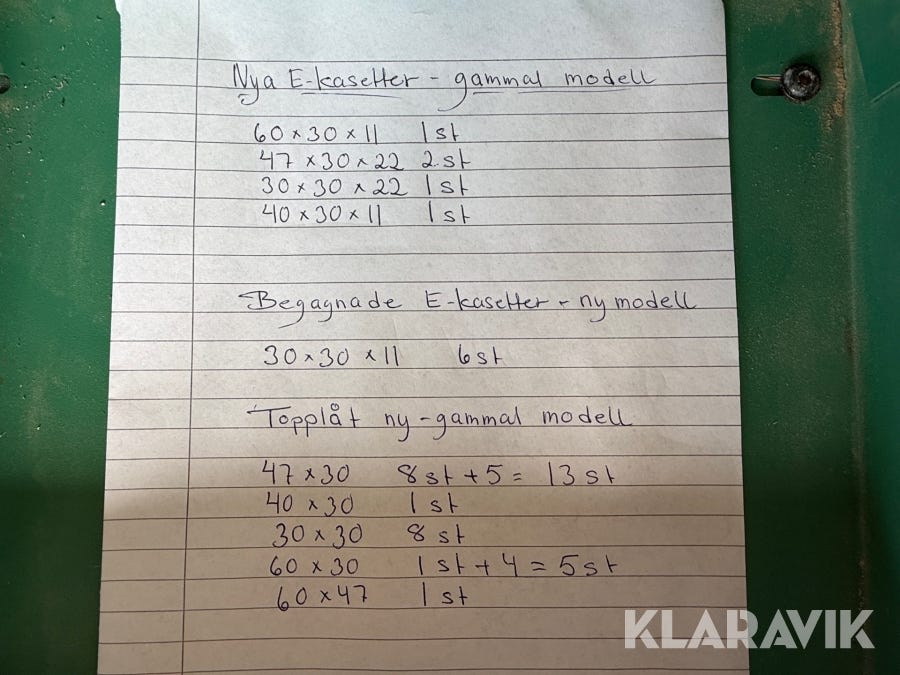 Nya E-kasetter - gammal modell
60 x 30 x 11 1 st
47 x 30 x 22 2 st
30 x 30 x 22 1 st
40 x 30 x 11 1 st
Begagnade E-kasetter - ny modell
30 x 30 x 11 6 st
Topplåt ny - gammal modell
47 x 30 8 st + 5 = 13 st
40 x 30 1 st
30 x 30 8 st
60 x 30 1 st + 4 = 5 st
60 x 47 1 st
KLARAVIK